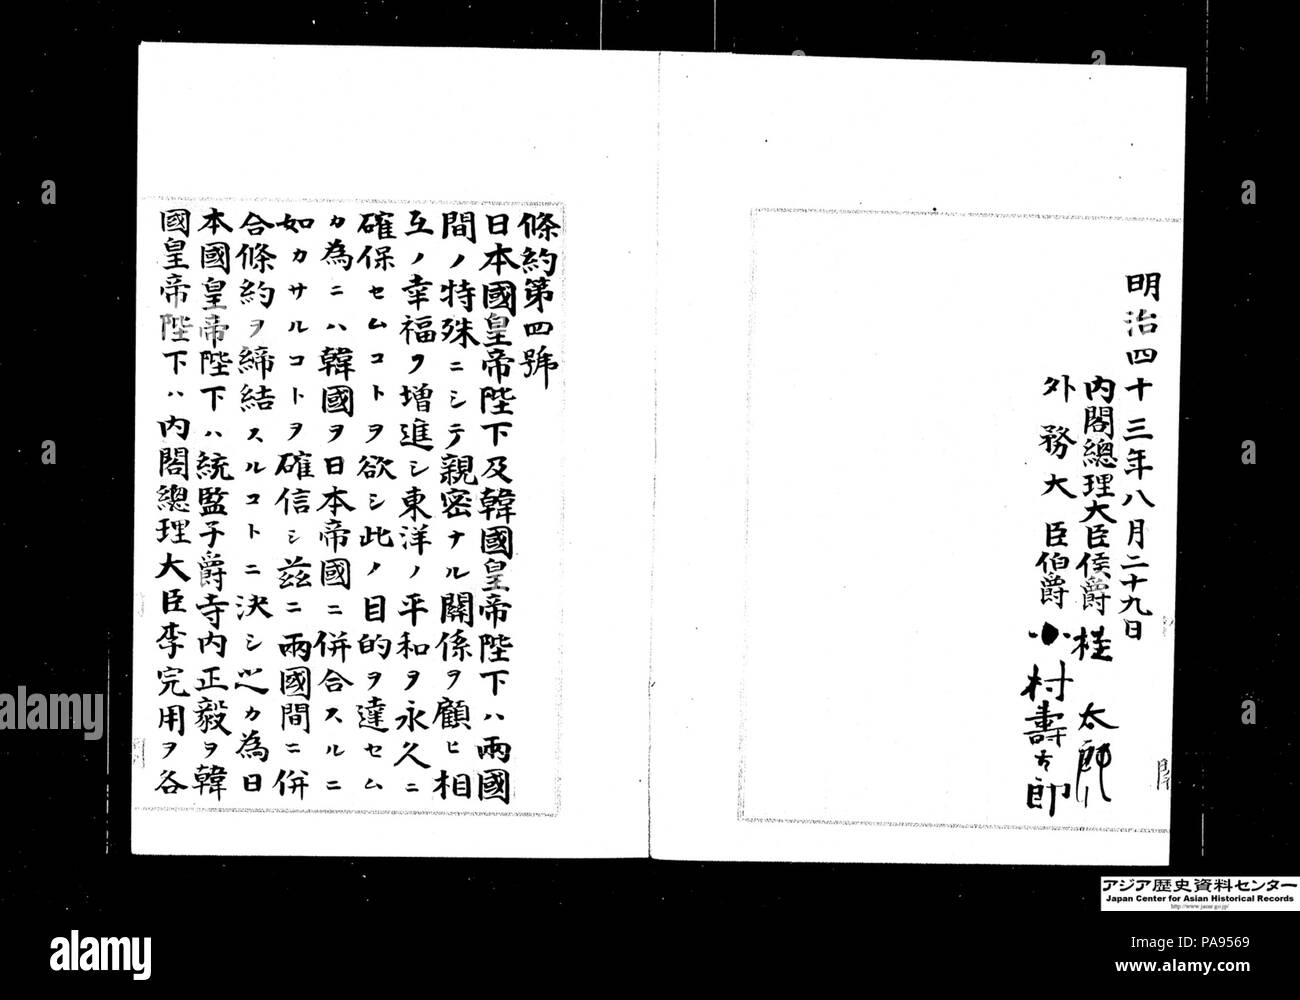 明治四十三年八月二十九日
内閣總理大臣侯爵桂太郎
外務大臣伯爵小村壽太郎
條約第四號
日本國皇帝陛下及韓國皇帝陛下ハ兩國
間ノ特殊ニシテ親密ナル關係ヲ顧ヒ相
互ノ幸福ヲ増進シ東洋ノ平和ヲ永久ニ
確保セムコトヲ欲シ此ノ目的ヲ達セム
カ為ニハ韓國ヲ日本帝國ニ併合スルニ
如カサルコトヲ確信シ茲ニ兩國間ニ併
合條約ヲ締結スルコトニ決シ之カ為日
本國皇帝陛下ハ統監子爵寺内正毅ヲ韓
國皇帝陛下ハ内閣總理大臣李完用ヲ各
アジア歴史資料センター
Japan Center for Asian Historical Records
http://www.jacar.go.jp/
a
a
a
a
a
a
alamy
alamy
PA9569
www.alamy.com